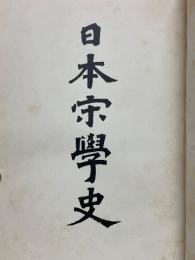 日本宋學史